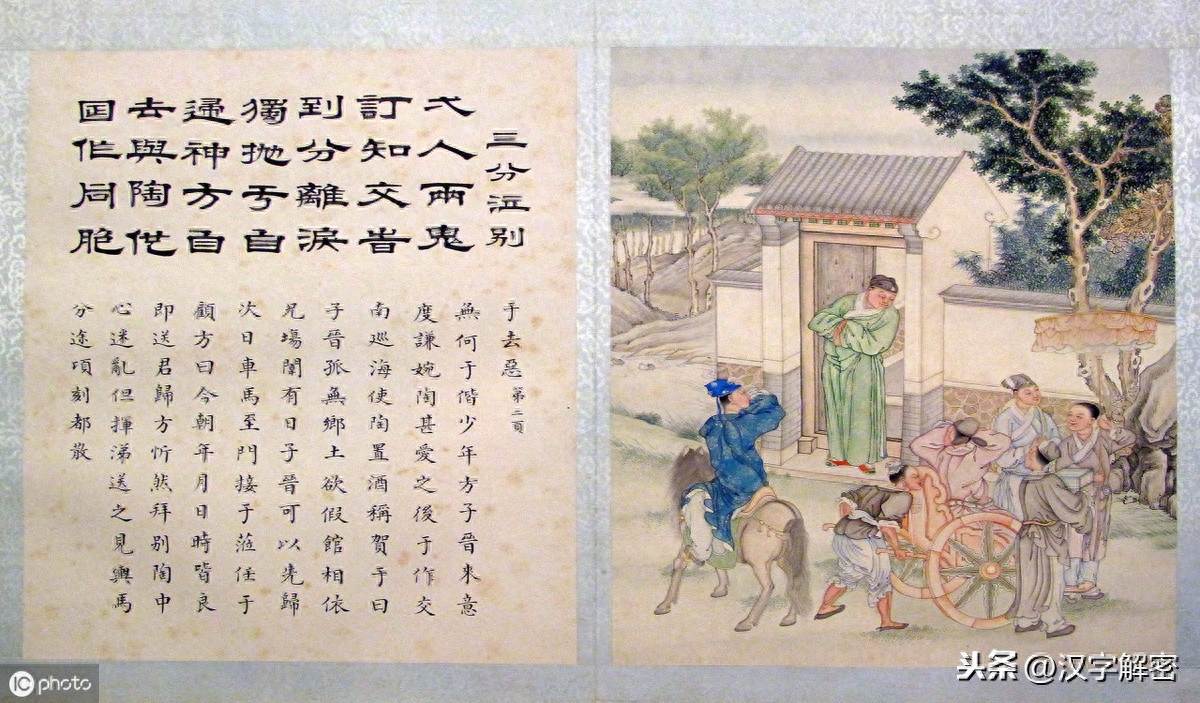 三分泣別
人兩鬼
訂知交旹
到分離淚
獨拋于自
神方自
去與陶他
作同胞
于去惡 第二頁
無何于偕少年方子晉來意
度謙婉陶甚愛之後于作交
南巡海使陶置酒稱賀于曰
子晉孤無鄉土欲假館相依
兄場闈有日子晉可以先歸
次日車馬至門接于蒞任于
顧方曰今朝年月日時皆良
即送君歸方忻然拜別陶中
心迷亂但揮涕送之見輿馬
分途頃刻都散
IC photo
头条 @汉字解密